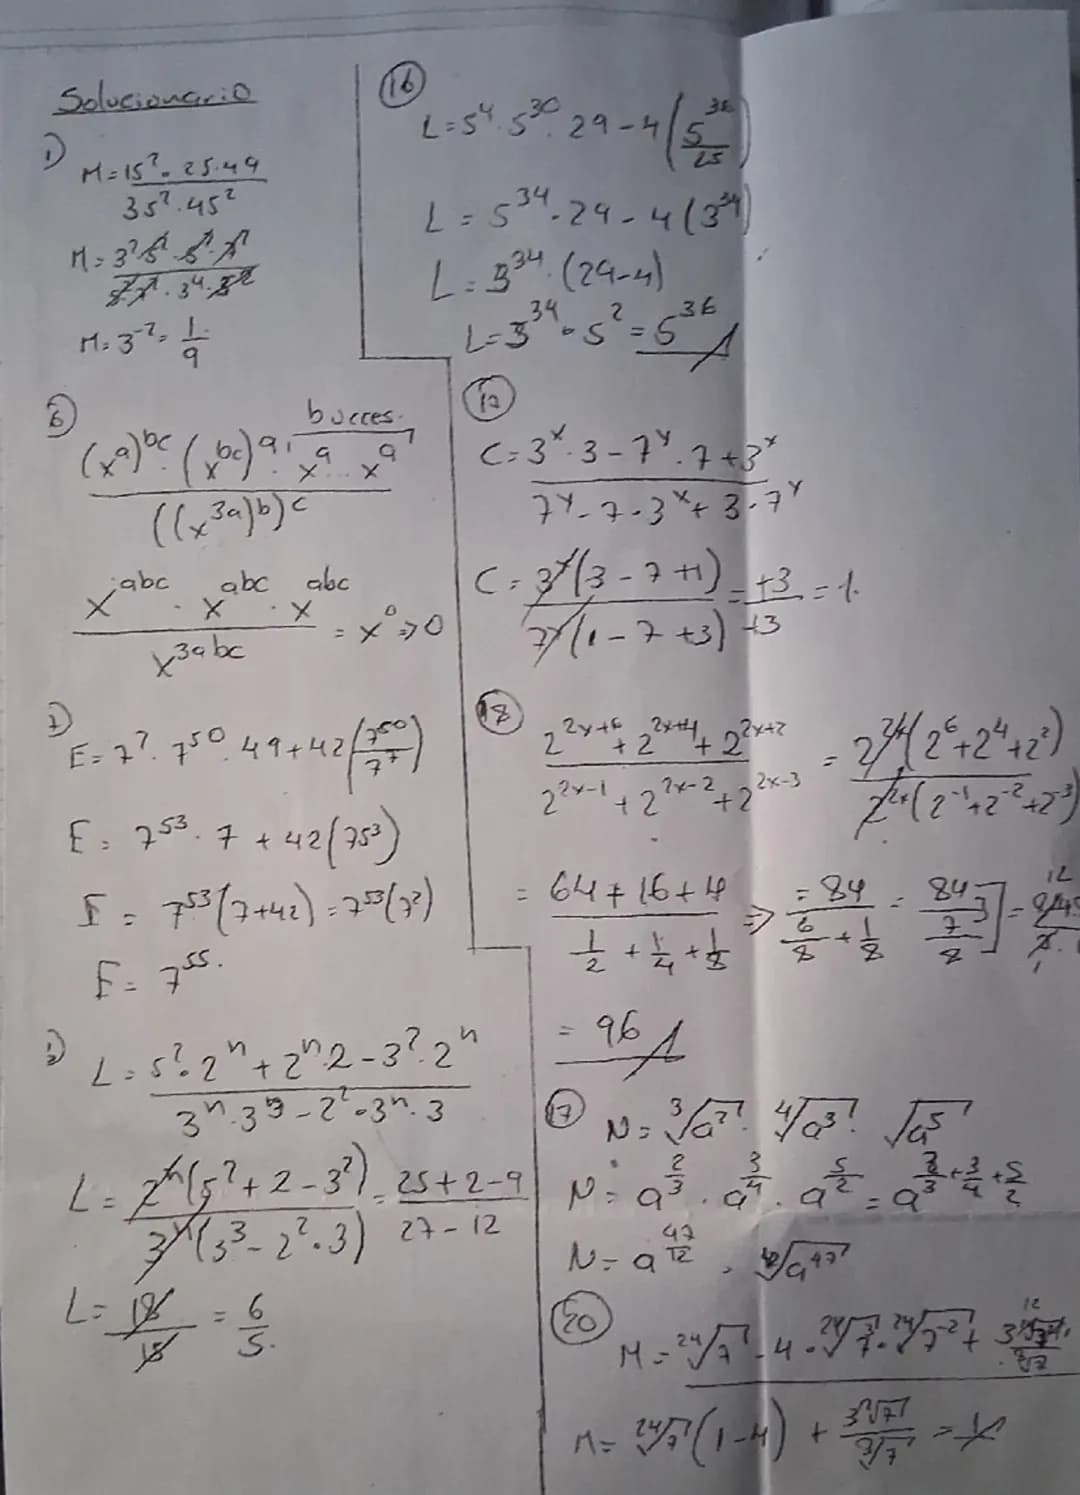 Solucionario
1)
M = 15². 25.49
35².45²
M = 3² 5² . 5² . 7²
5² 7² . 3⁴ . 5²
M = 3⁻² = 1/9
6)
b veces.
(x^a)^bc . (x^bc)^a . x^a ... x^a
((x^3a)^b)^c
x^abc . x^abc . x^abc
x^3abc
= x⁰ => 0
7)
E = 7² . 7⁵⁰ . 49 + 42(7⁵⁰/7⁷)
E = 7⁵³ . 7 + 42(7⁵³)
E = 7⁵³(7+42) = 7⁵³(7²)
E = 7⁵⁵.
L = 5² . 2ⁿ + 2ⁿ.2 - 3² . 2ⁿ
3ⁿ . 3³ - 2² . 3ⁿ . 3
L = 2ⁿ(5² + 2 - 3²) = 25 + 2 - 9
3ⁿ(3³ - 2² . 3) 27 - 12
L = 18/15 = 6/5.
16
L = 5⁴ . 5³⁰ . 29 - 4(5³⁶/25)
L = 5³⁴ . 29 - 4(3³⁴)
L = 5³⁴ . (29-4)
L = 5³⁴ . 5² = 5³⁶
17
C = 3ˣ . 3 - 7ʸ . 7 + 3ˣ
7ʸ - 7 . 3ˣ + 3 . 7ʸ
C = 3ˣ(3 - 7 + 1) = +3 = 1.
7ˣ(1 - 7 + 3) +3
18
2^2x+6 + 2^2x+4 + 2^2x+2 = 2^2x(2⁶ + 2⁴ + 2²)
2^2x-1 + 2^2x-2 + 2^2x-3 2^2x(2⁻¹ + 2⁻² + 2⁻³)
= 64 + 16 + 4 => = 84 = 84
1/2 + 1/4 + 1/8 6/8 + 1/8 7/8
= 96
17
N = ³√a² . ⁴√a³ . √a⁵
N = a^2/3 . a^3/4 . a^5/2 = a^2/3 + 3/4 + 5/2
N = a^47/12 , ¹²√a⁴⁷
20
M = ²⁴√7 - 4 . ²⁴√7³ . ²⁴√7⁻² +
M = ²⁴√7 (1-4) +